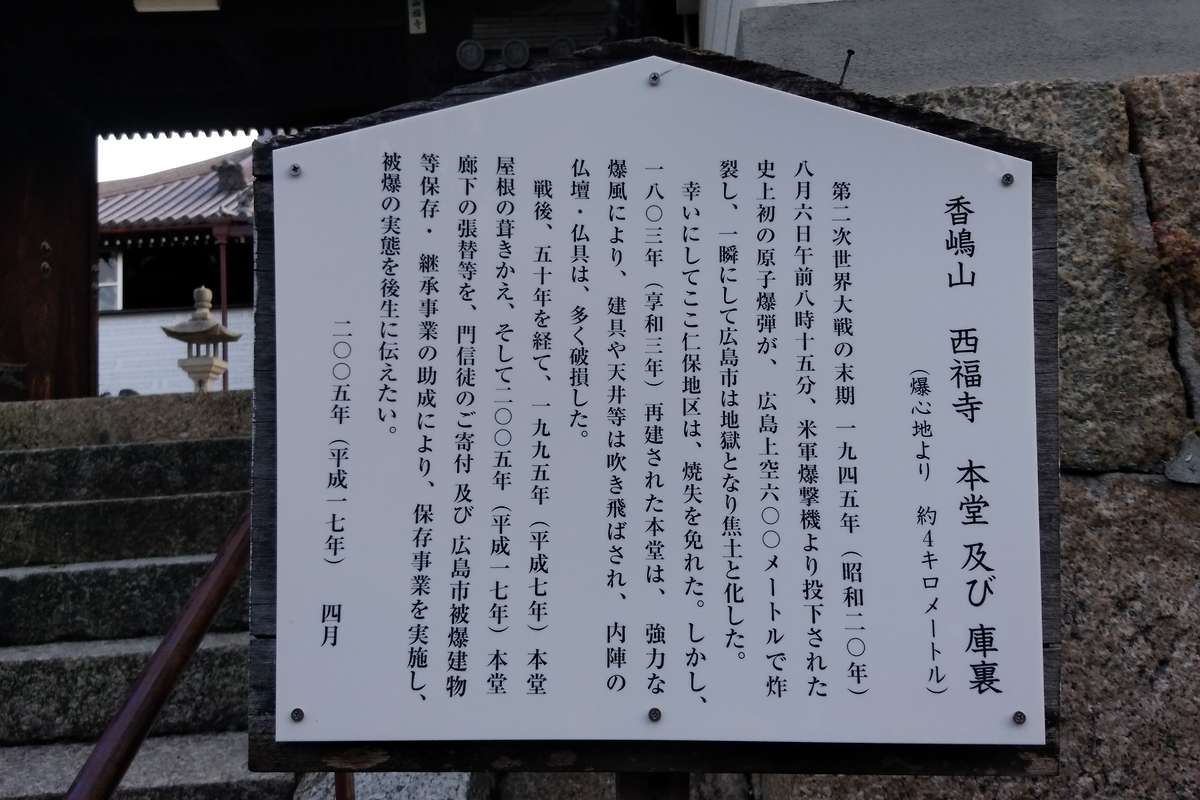 香嶋山　西福寺　本堂 及び 庫裏
（爆心地より　約4キロメートル）
第二次世界大戦の末期　一九四五年（昭和二〇年）
八月六日午前八時十五分、米軍爆撃機より投下された
史上初の原子爆弾が、　広島上空六〇〇メートルで炸
裂し、一瞬にして広島市は地獄となり焦土と化した。
幸いにしてここ仁保地区は、焼失を免れた。しかし、
一八〇三年（享和三年）再建された本堂は、　強力な
爆風により、建具や天井等は吹き飛ばされ、　内陣の
仏壇・仏具は、多く破損した。
戦後、五十年を経て、一九九五年（平成七年）本堂
屋根の葺きかえ、そして二〇〇五年（平成一七年）本堂
廊下の張替等を、門信徒のご寄付 及び 広島市被爆建物
等保存・　継承事業の助成により、保存事業を実施し、
被爆の実態を後生に伝えたい。
二〇〇五年（平成一七年）　四月